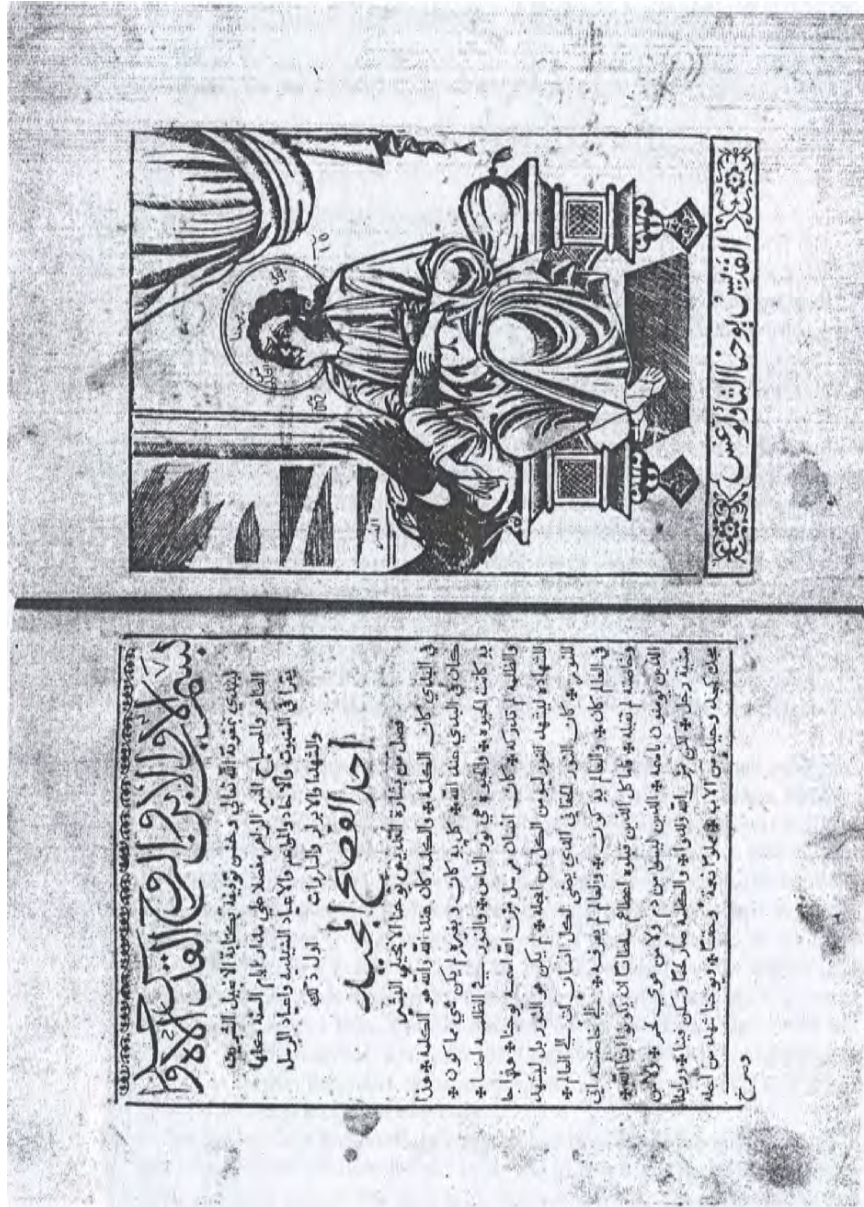 القديس يوحنا الثاولوغس
النسر
بسم الاب والابن والروح القدس الاله الواحد
نبتدي بمعونة الله تعالي وحسن توفيقه بكتابة الانجيل الشريف
الطاهر والمصباح المنير الزاهر مفصلا علي مدار ايام السنة كلها
يقرا في السبوت والاحاد والمواسم والاعياد السيدية واعياد الرسل
والشهدا والابرار والبارات اول ذلك
احد الفصح المجيد
فصل من بشارة القديس يوحنا الانجيلي البشير
في البدي كان الكلمة * والكلمة كان عند الله والله هو الكلمة * هذا
كان في البدي عند الله * كل به كان وبغيره لم يكن شي مما كون *
به كانت الحيوة * والحيوة هي نور الناس * والنور في الظلمة اضا *
والظلمة لم تدركه * كان انسان مرسل من الله اسمه يوحنا * هذا جا
للشهاده ليشهد للنور ليومن الكل من اجله * لم يكن هو النور بل ليشهد
للنور * كان النور الحقاني الذي يضي لكل انسان آت الي العالم *
في العالم كان * والعالم به كون * والعالم لم يعرفه * الي خاصته اتي
وخاصته لم تقبله * فاما كل الذين قبلوه اعطاهم سلطانا ان يكونوا ابنا الله *
الذين يومنون باسمه * الذين ليسوا من دم ولا من هوي لحم * ولا من
مشية رجل * لكن من الله ولدوا * والكلمة صار جسدا وسكن فينا * وراينا
مجده كمجد وحيد من الاب * مملوا نعمة وحقا * ويوحنا شهد من اجله
وصرخ